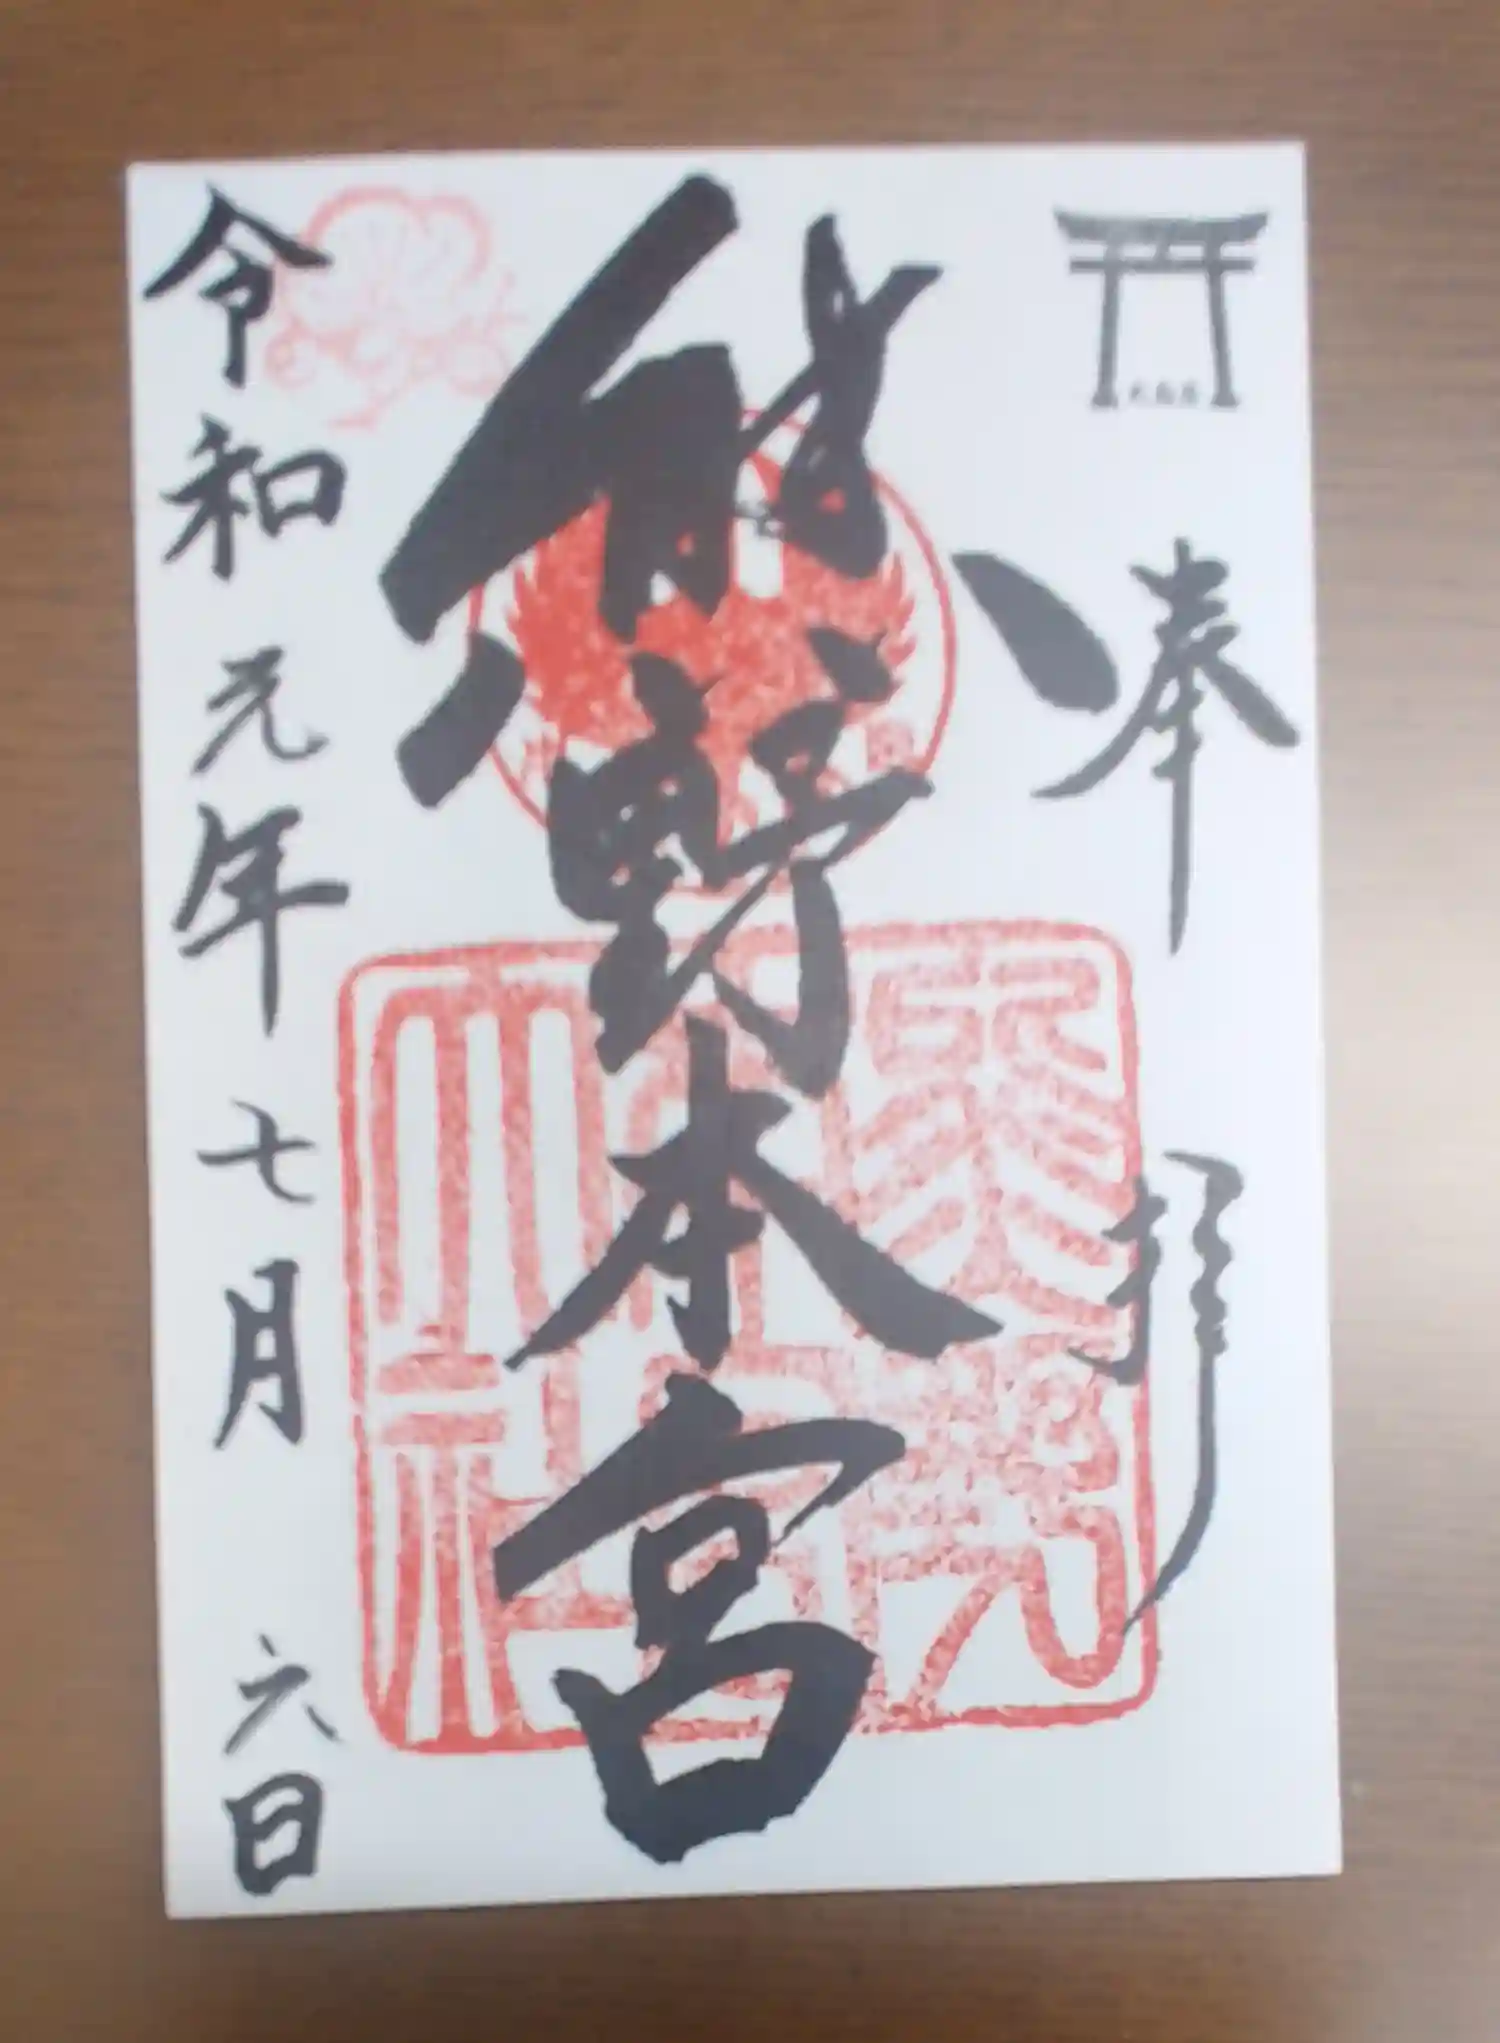 奉拝
熊野本宮
熊野本宮大社
令和元年七月六日